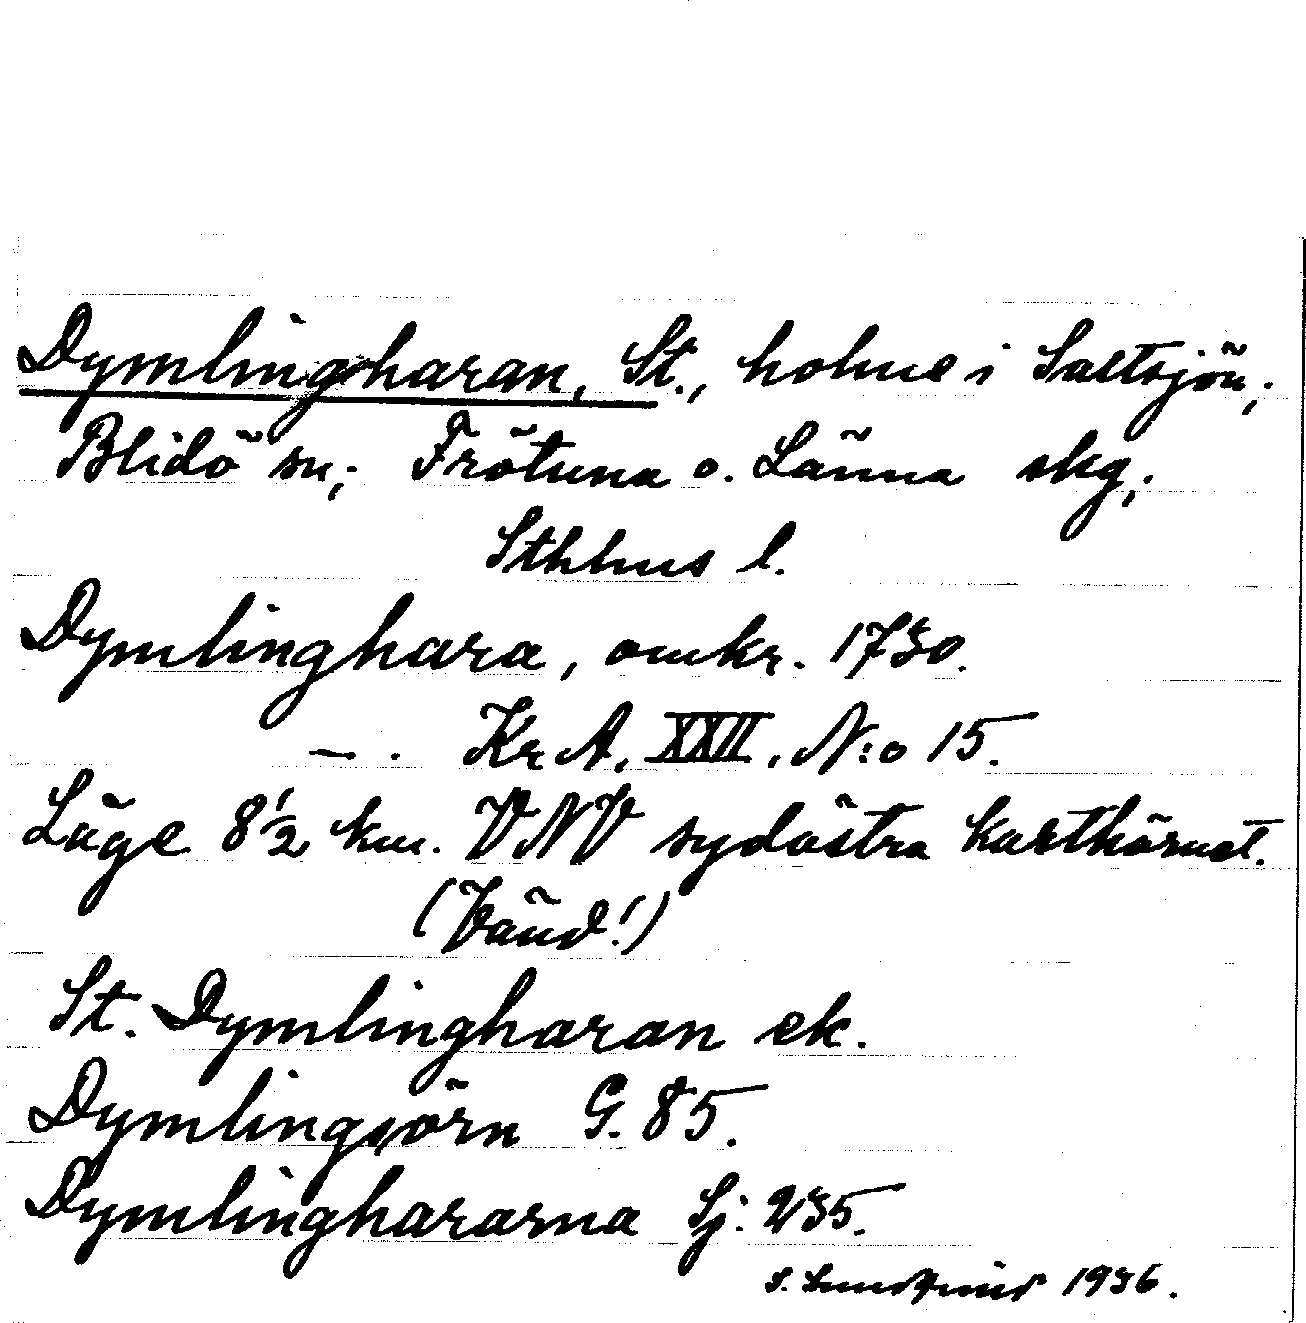 Dymlingharan, St., holme i Saltsjön,;
Blidö sn,; Frötuna o. Länna skg,;
Sthlms l.
Dymlinghara, omkr. 1730.
— . Kr A, XXII, N:o 15.
Läge 8 1/2 km. VNV sydöstra karthörnet.
(Vänd!)
St. Dymlingharan ek.
Dymlingsörn G. 85.
Dymlinghararna Sj: 235.
S. 1936.